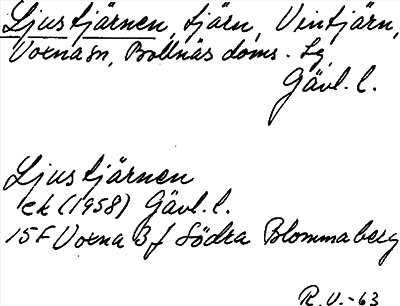 Ljustjärnen, tjärn, Vintjärn,
Voxna sn, Bollnäs doms. lg,
Gävl. l.
Ljustjärnen
ek (1958) Gävl. l.
15F Voxna 3 f Södra Blommaberg
R.V.-63